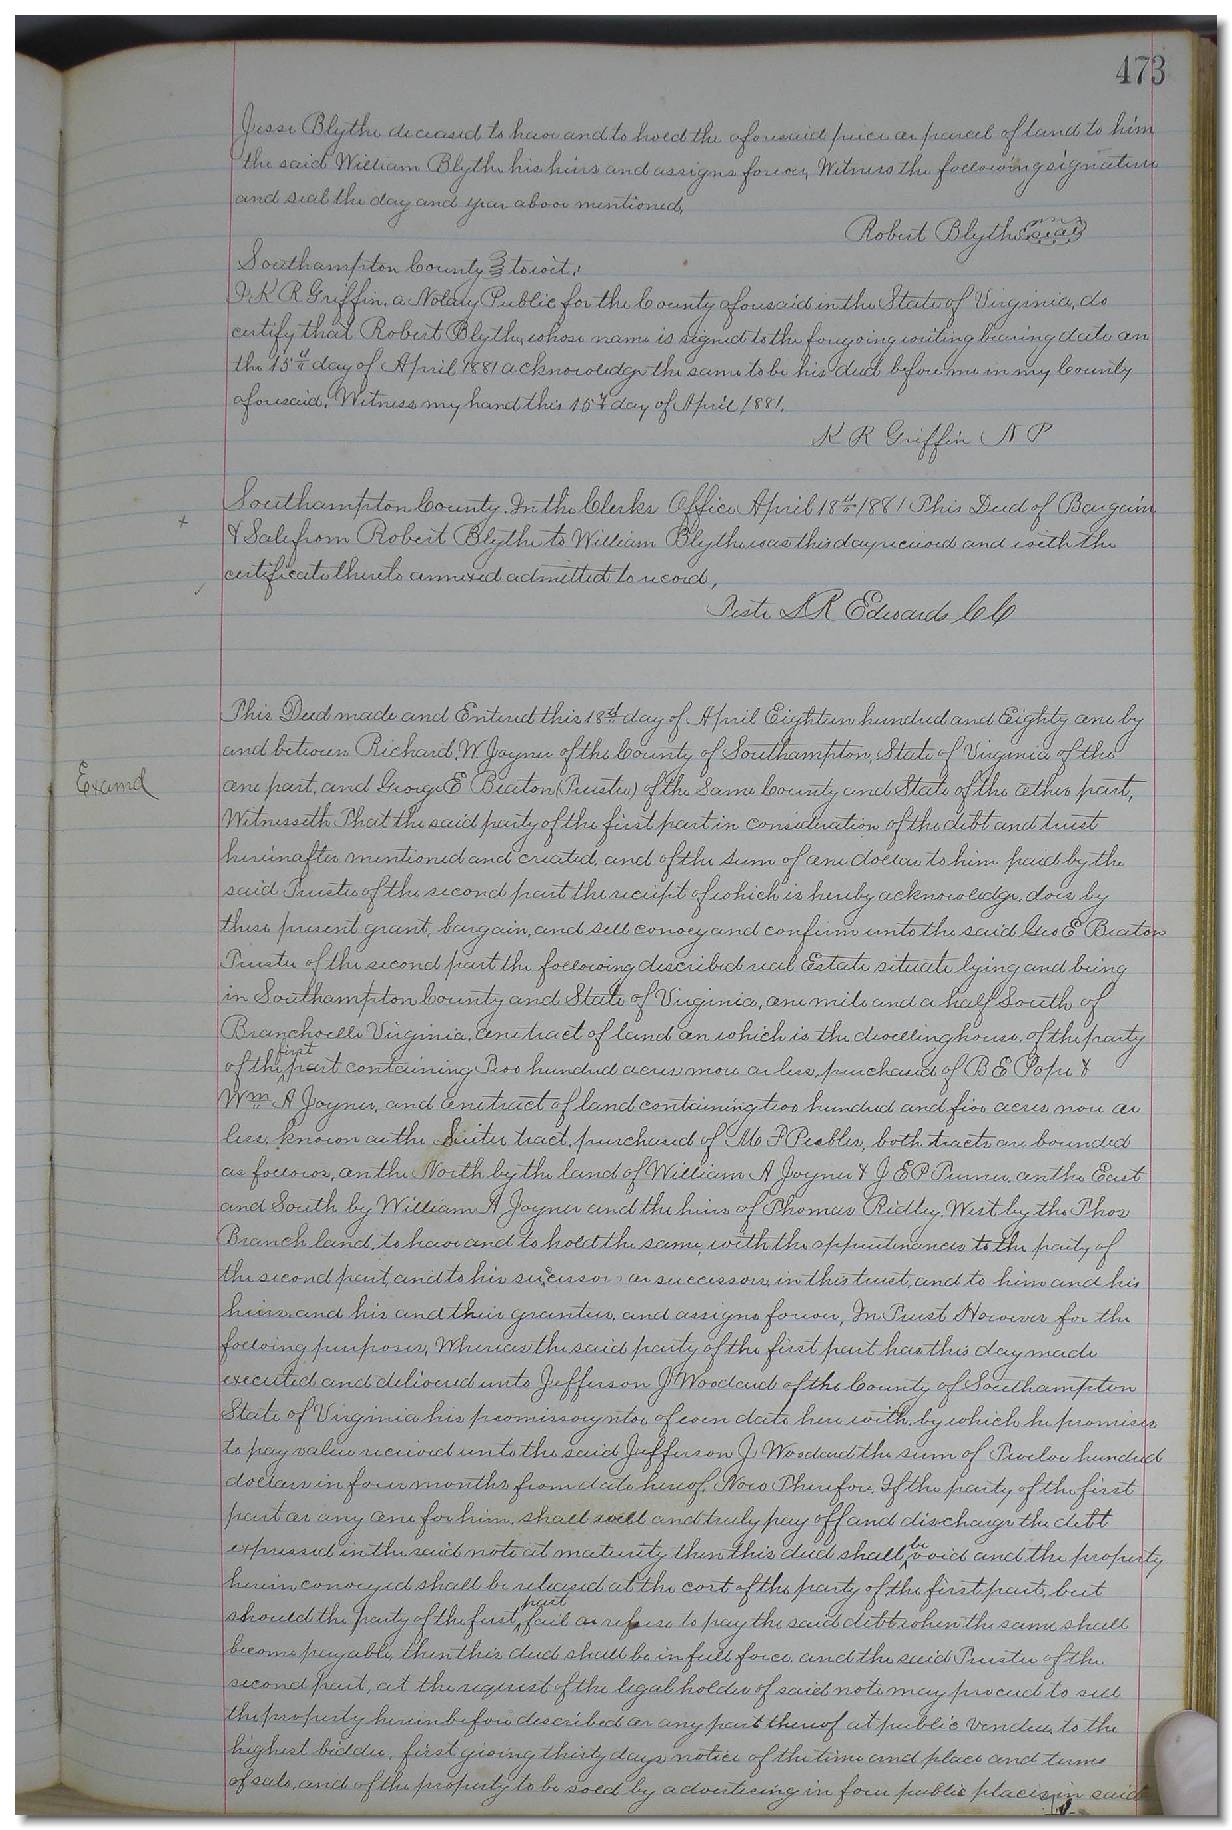 473
Jesse Blythe deceased to have and to hold the aforesaid peice or parcel of land to him
the said William Blythe his heirs and assigns forever, Witness the following signature
and seal the day and year above mentioned,
Robert Blythe seal
Southampton County } towit:
I K R Griffin, a Notary Public for the County aforesaid in the State of Virginia, do
certify that Robert Blythe, whose name is signed to the foregoing writing bearing date on
the 15th day of April 1881 acknowledge the same to be his deed before me in my County
aforesaid. Witness my hand this 15th day of April 1881.
K R Griffin N P
Southampton County. In the Clerks Office April 18th 1881 This Deed of Bargain
& Sale from Robert Blythe to William Blythe was this day received and with the
certificate thereto annexed admitted to record,
Teste L R Edwards C C
This Deed made and Entered this 18th day of April Eighteen hundred and Eighty one by
and between Richard. W Joyner of the County of Southampton, State of Virginia of the
Examd
one part, and George E Beaton (Trustee) of the Same County and State of the other part,
Witnesseth That the said party of the first part in consideration of the debt and trust
hereinafter mentioned and created, and of the sum of one dollar to him paid by the
said Trustee of the second part the receipt of which is hereby acknowledge, does by
these present grant, bargain, and sell convey and confirm unto the said Geo E Beaton
Trustee of the second part the following described real Estate situate lying and being
in Southampton County and State of Virginia, one mile and a half South of
Branchville Virginia, one tract of land on which is the dwelling house, of the party
of the first part containing Two hundred acres more or less, purchased of B E Pope &
Wm A Joyner, and one tract of land containing two hundred and five acres more or
less, known as the Suiter tract, purchased of M P Peebles, both tracts are bounded
as follows, on the North by the land of William A Joyner & J E P Turner, on the East
and South by William A Joyner and the heirs of Thomas Ridley, West by the Thos
Branch land, to have and to hold the same, with the appurtenances to the party of
the second part, and to his successor or successors, in this trust, and to him and his
heirs, and his and their grantees, and assigns forever, In Trust However for the
folloving purposes, Whereas the said party of the first part has this day made
executed and delivered unto Jefferson J Woodard of the County of Southampton
State of Virginia his promissory note of even date here with, by which he promises
to pay value received unto the said Jefferson J Woodard the sum of Twelve hundred
dollars in four months from date hereof, Now Therefore, If the party of the first
part or any one for him, shall well and truly pay off and discharge the debt
expressed in the said note at maturity then this deed shall be void and the property
herein conveyed shall be released at the cost of the party of the first part, but
should the party of the first part fail or refuse to pay the said debt when the same shall
become payable, then this deed shall be in full force and the said Trustee of the
second part, at the request of the legal holder of said note may proceed to sell
the property hereinbefore described or any part thereof at public vendue, to the
highest bidder, first giving thirty days notice of the time and place and terms
of sale, and of the property to be sold by advertising in four public places, in said